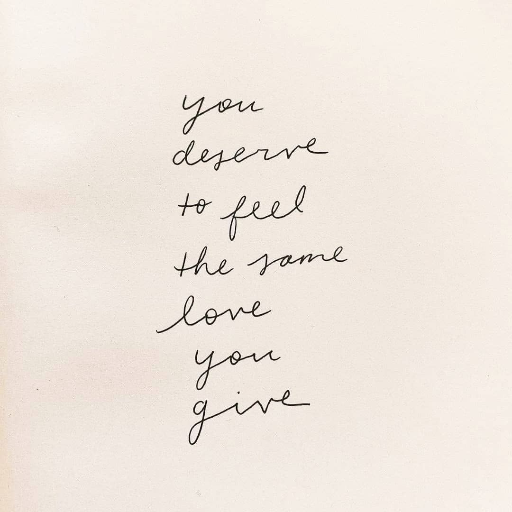 you
deserve
to feel
the same
love
you
give